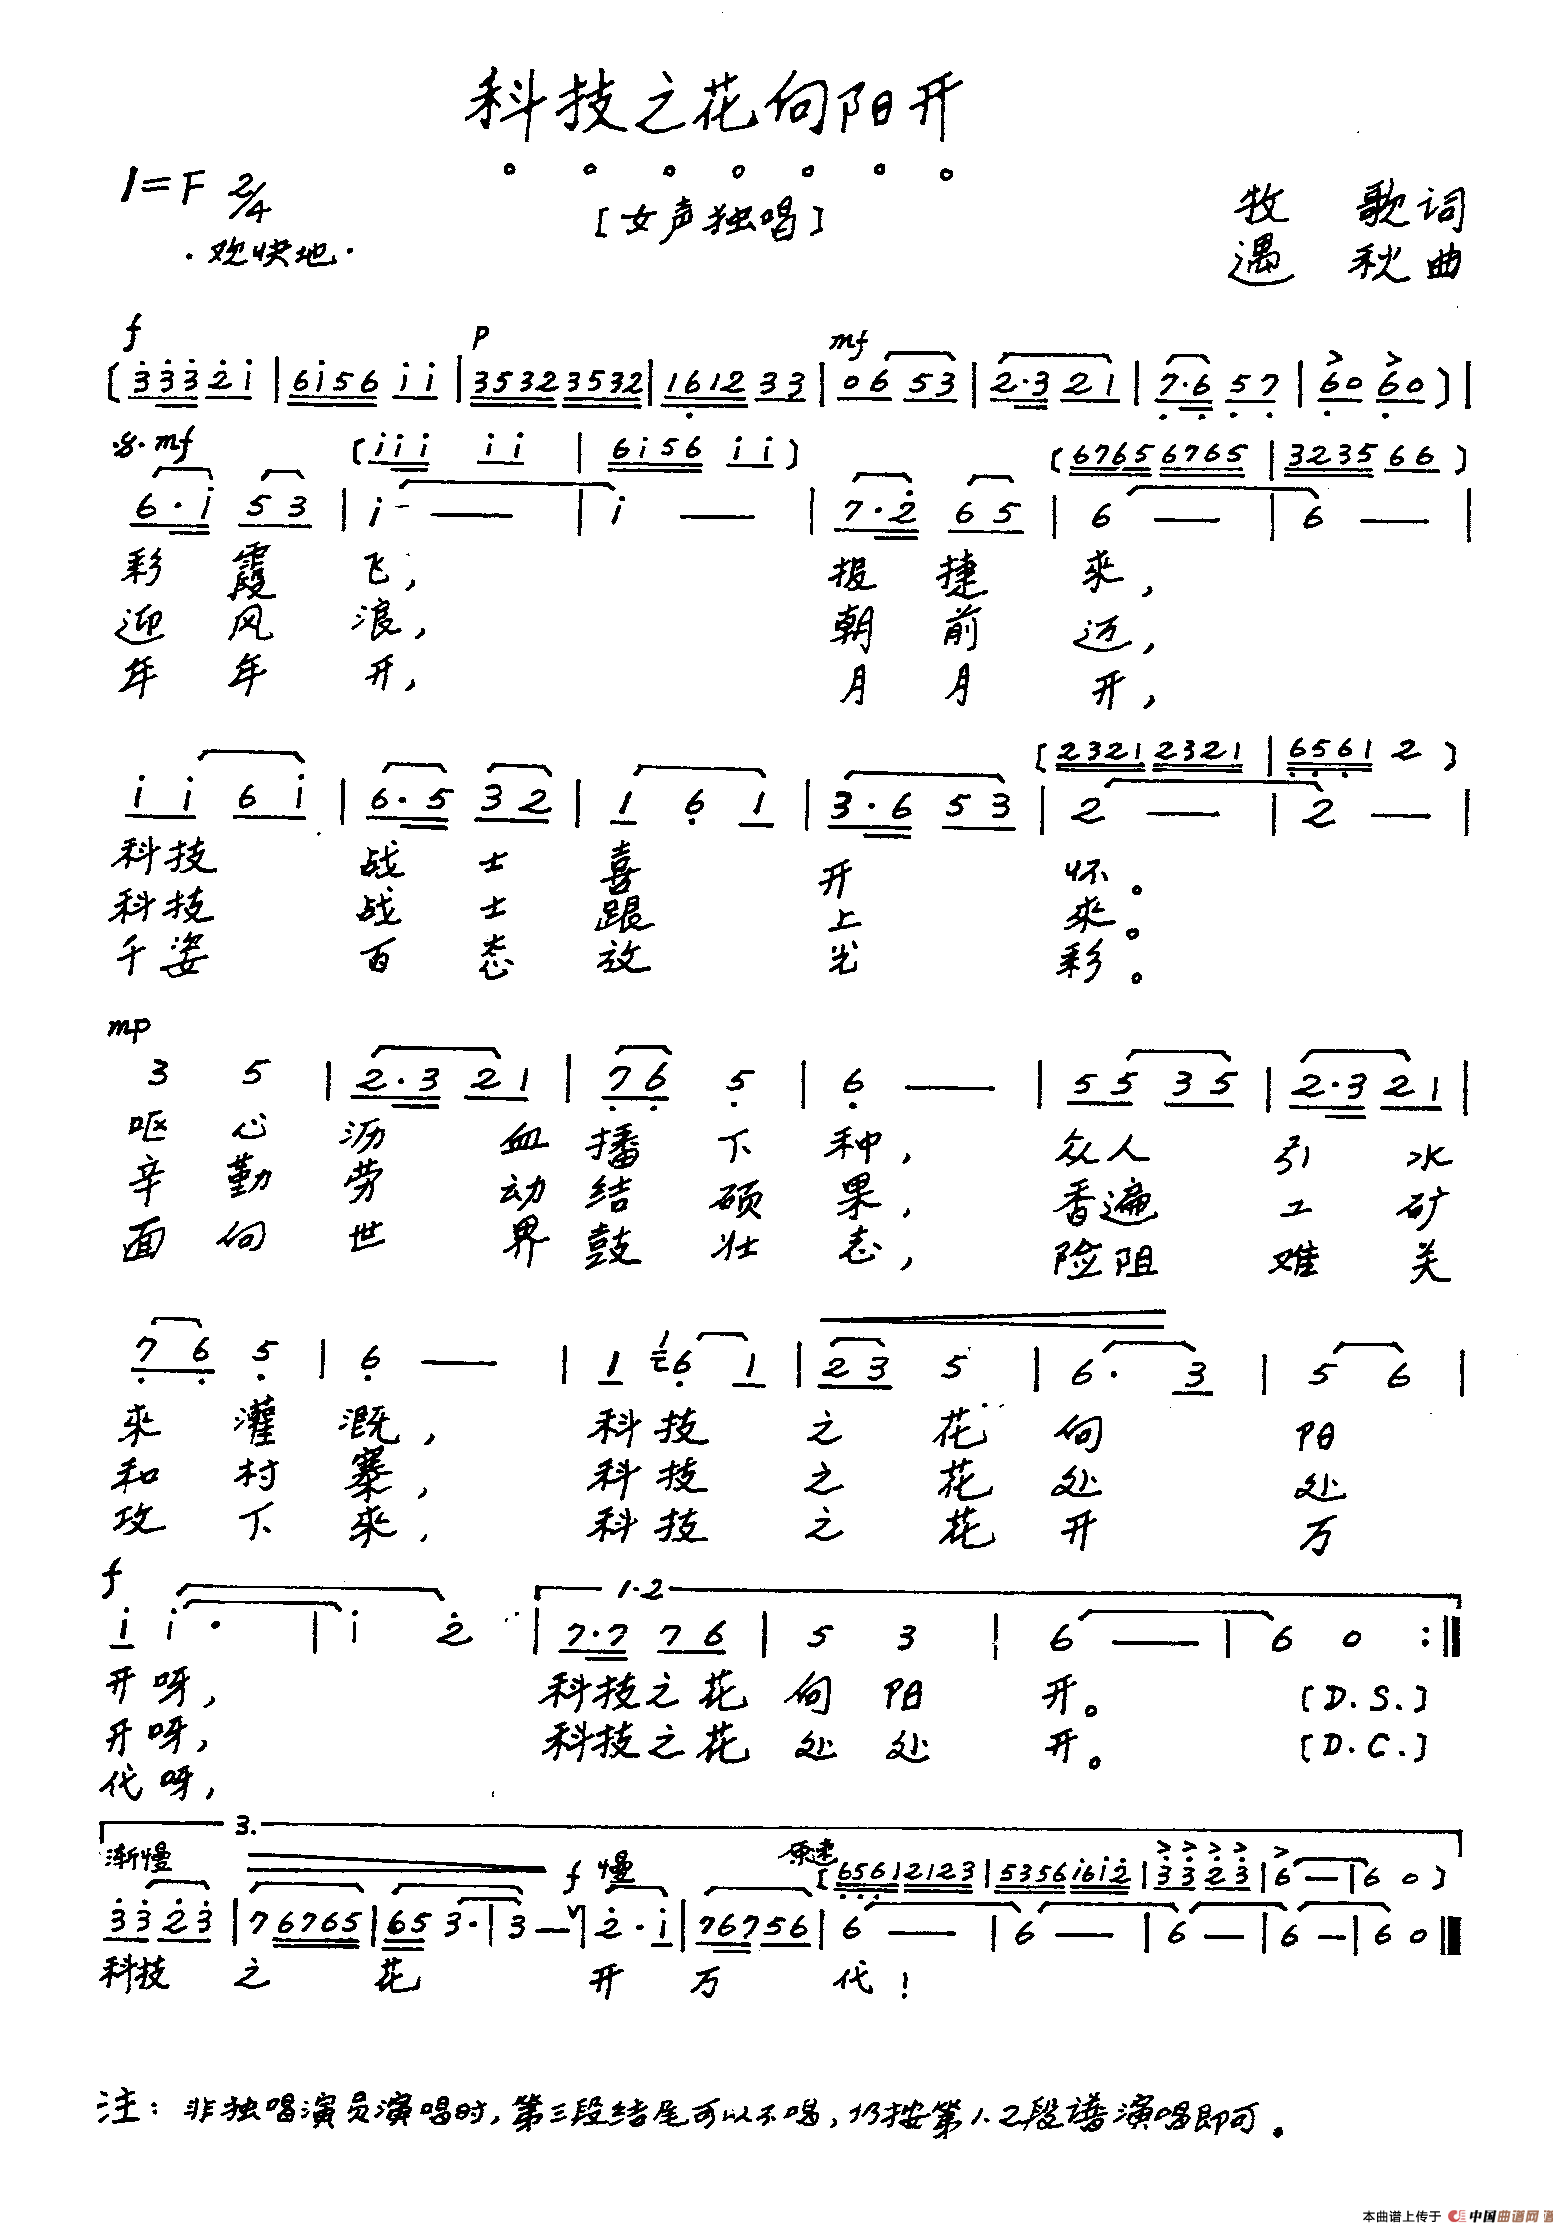 科技之花向阳开
1=F 2/4
[女声独唱]
牧 歌词
·欢快地·
遇 秋曲
f p mf
(3̇3̇3̇2̇i | 6i56 ii | 35323532 | 161233 | 06 53 | 2·3 21 | 7·6 57 | 60 60)|
mf (iii ii | 6i56 ii) (67656765 | 3235 66)
6·i 53 | i — | i — | 7·2̇ 65 | 6 — | 6 — |
彩 霞 飞, 报 捷 来,
迎 风 浪, 朝 前 迈,
年 年 开, 月 月 开,
(23212321 | 6561 2)
ii 6i | 6·5 32 | 1 6 1 | 3·6 53 | 2 — | 2 — |
科技 战 士 喜 开 怀。
科技 战 士 跟 上 来。
千姿 百 态 放 光 彩。
mp
3 5 | 2·3 21 | 76 5 | 6 — | 55 35 | 2·3 21 |
呕 心 沥 血 播 下 种, 众人 引 水
辛 勤 劳 动 结 硕 果, 香遍 工 矿
面 向 世 界 鼓 壮 志, 险阻 难 关
76 5 | 6 — | 1 6 1 | 23 5 | 6· 3 | 5 6 |
来 灌 溉, 科 技 之 花 向 阳
和 村 寨, 科 技 之 花 处 处
攻 下 来, 科 技 之 花 开 万
f 1·2
i i· | i 2̇ | 7·7 76 | 5 3 | 6 — | 6 0 :‖
开呀, 科技之花 向 阳 开。 [D.S.]
开呀, 科技之花 处 处 开。 [D.C.]
代呀,
3.
渐慢 f 慢 原速 (65612123 | 5356i6i2̇ | 3̇3̇2̇3̇ | 6 — | 6 0)
3̇3̇2̇3̇ | 76765 | 65 3· | 3 — | 2̇· i | 76756 | 6 — | 6 — | 6 — | 6 — | 6 0 ‖
科技 之 花 开 万 代!
注: 非独唱演员演唱时,第三段结尾可以不唱,仍按第1.2段谱演唱即可。
本曲谱上传于 中国曲谱网